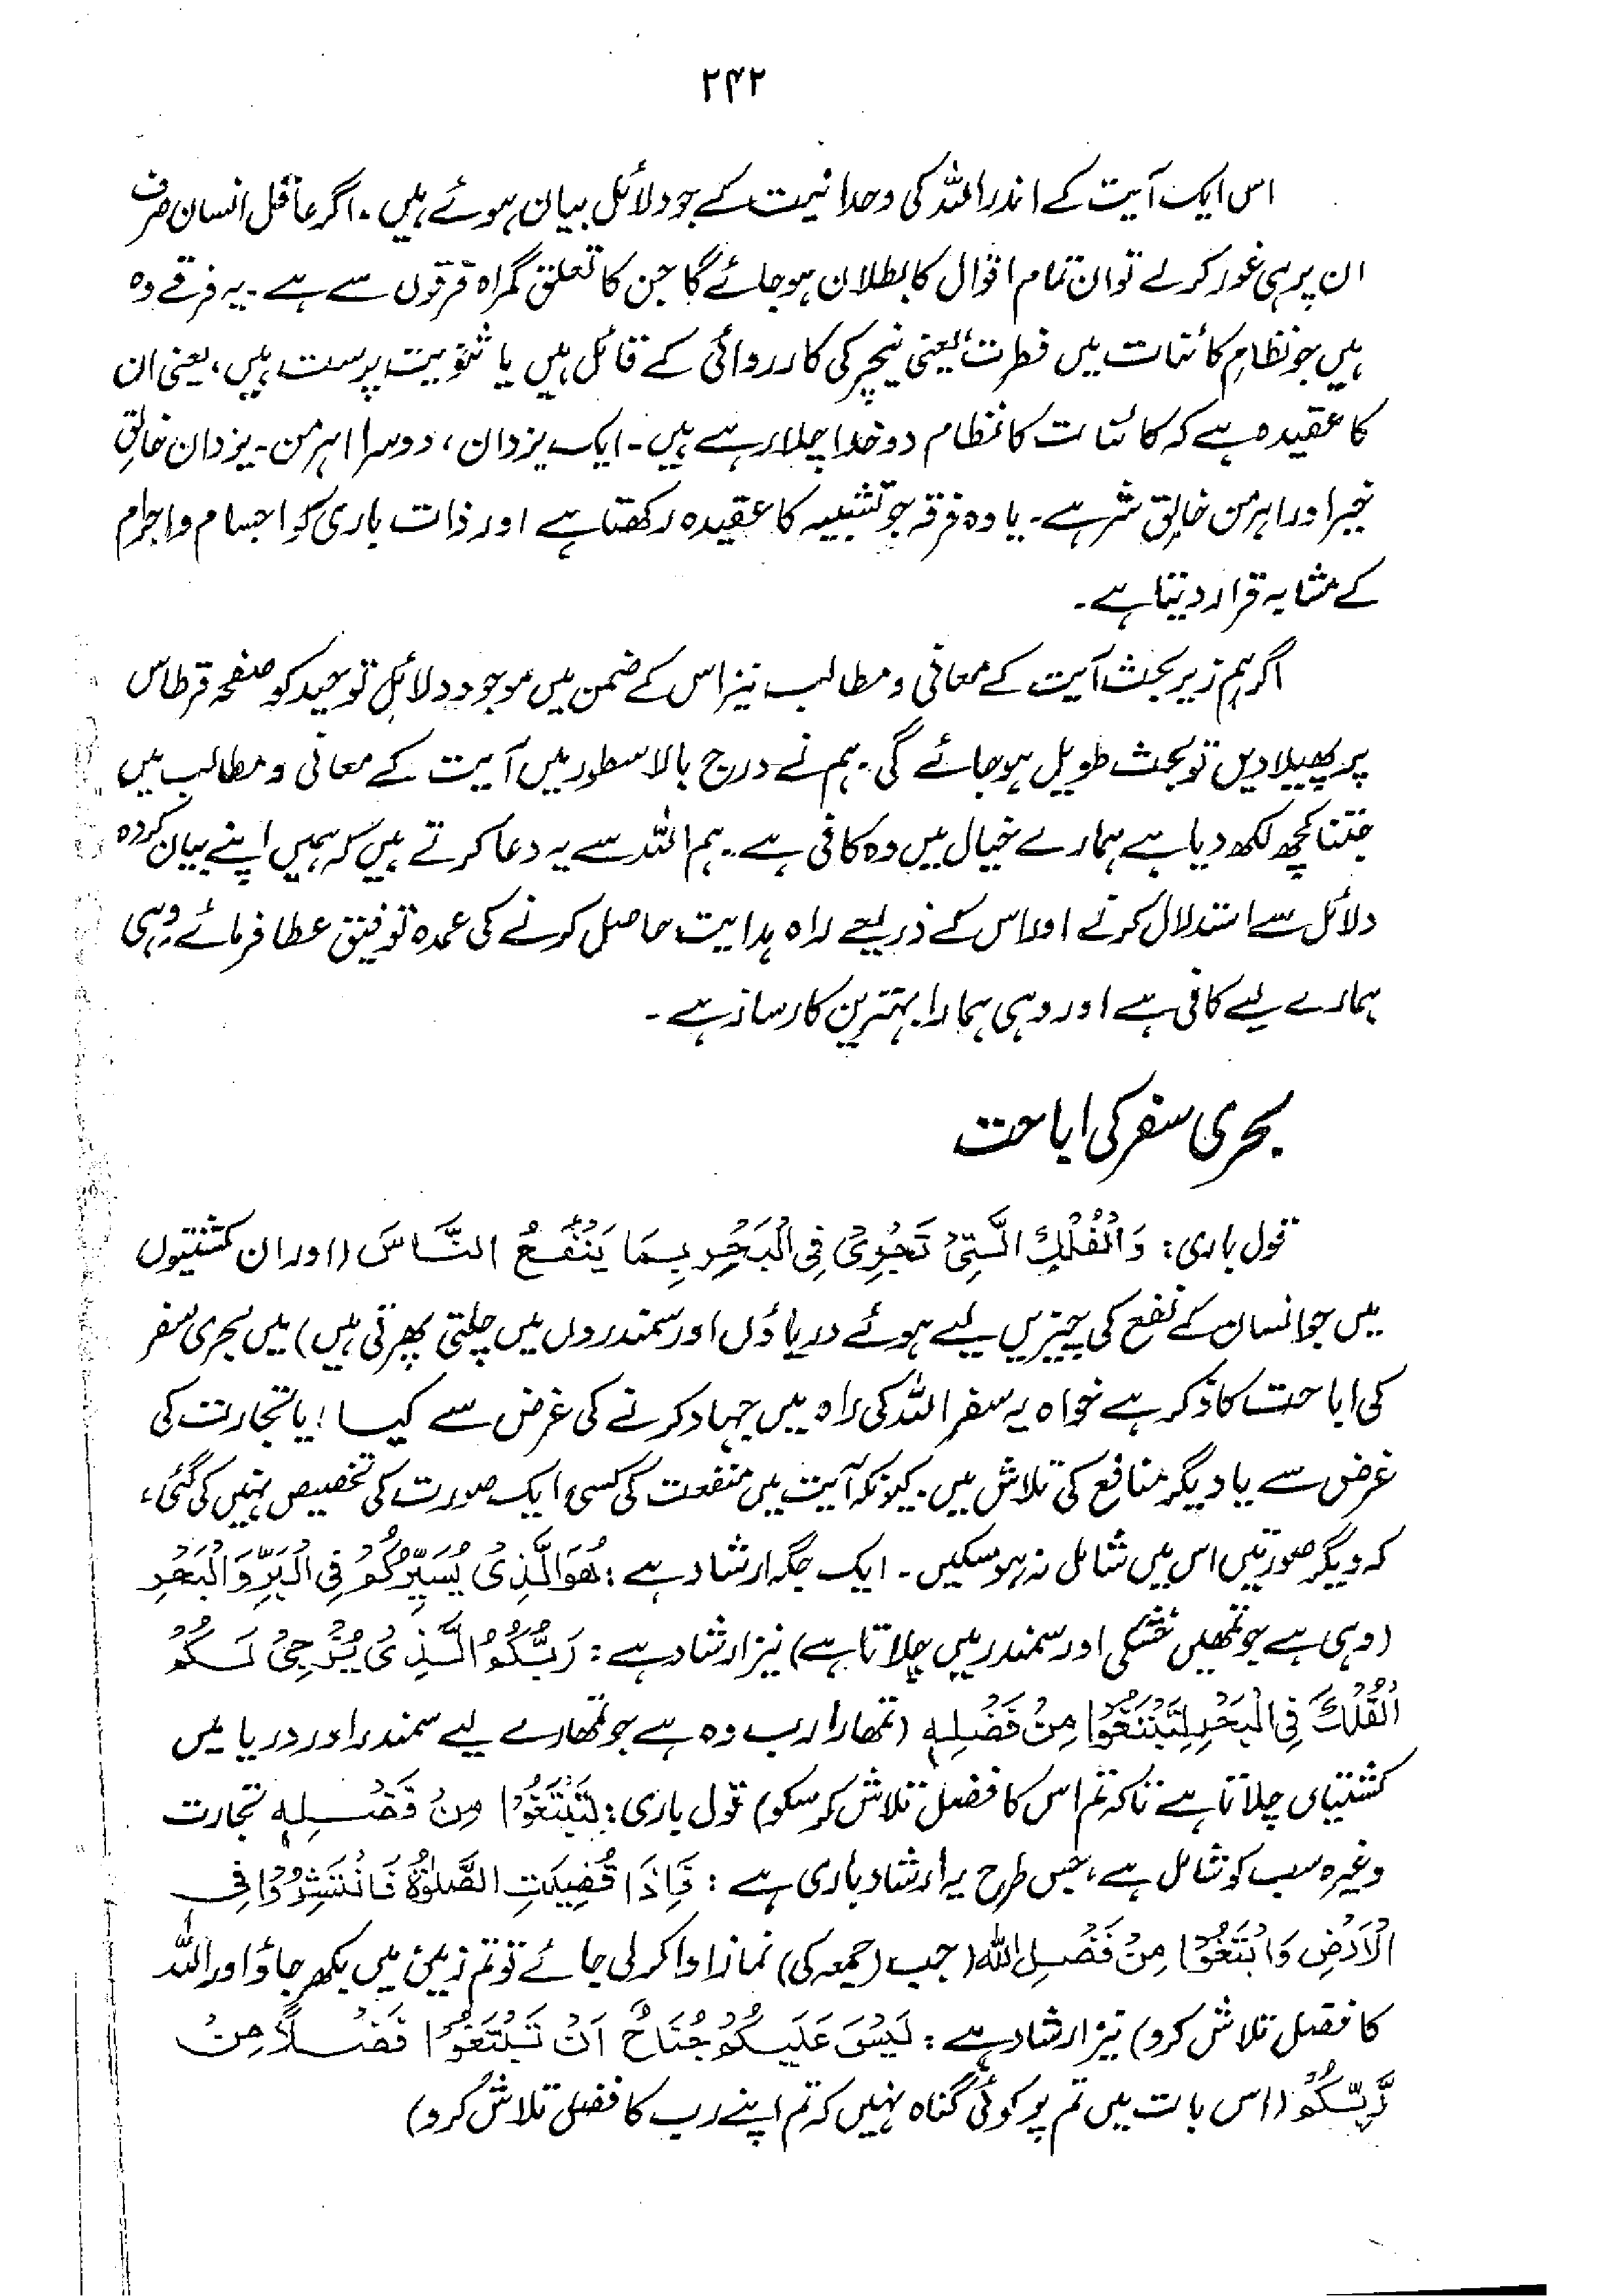 ۲۴۲
اس ایک آیت کے اندر اللہ کی وحدانیت کے جو دلائل بیان ہوئے ہیں۔ اگر عاقل انسان صرف
ان پر ہی غور کرلے تو ان تمام اقوال کا بطلان ہوجائے گا جن کا تعلق گمراہ فرقوں سے ہے۔ یہ فرقے وہ
ہیں جو نظامِ کائنات میں فطرت یعنی نیچر کی کارروائی کے قائل ہیں یا ثنویت پرست ہیں، یعنی ان
کا عقیدہ ہے کہ کائنات کا نظام دو خدا چلا رہے ہیں۔ ایک یزدان، دوسرا اہرمن۔ یزدان خالقِ
خیر اور اہرمن خالقِ شر ہے۔ یا وہ فرقہ جو تشبیہ کا عقیدہ رکھتا ہے اور ذات باری کو اجسام و اجرام
کے مشابہ قرار دیتا ہے۔
اگر ہم زیر بحث آیت کے معانی و مطالب نیز اس کے ضمن میں موجود دلائلِ توحید کو صفحہ قرطاس
پر پھیلا دیں تو بحث طویل ہوجائے گی۔ ہم نے درج بالا سطور میں آیت کے معانی و مطالب میں
جتنا کچھ لکھ دیا ہے ہمارے خیال میں وہ کافی ہے۔ ہم اللہ سے یہ دعا کرتے ہیں کہ ہمیں اپنے بیان کردہ
دلائل سے استدلال کرنے اور اس کے ذریعے راہ ہدایت حاصل کرنے کی عمدہ توفیق عطا فرمائے وہی
ہمارے لیے کافی ہے اور وہی ہمارا بہترین کارساز ہے۔
بحری سفر کی اباحت
قول باری: وَالْفُلْكِ الَّتِیْ تَجْرِیْ فِی الْبَحْرِ بِمَا یَنْفَعُ النَّاسَ (اور ان کشتیوں
میں جو انسان کے نفع کی چیزیں لیے ہوئے دریاؤں اور سمندروں میں چلتی پھرتی ہیں) میں بحری سفر
کی اباحت کا ذکر ہے خواہ یہ سفر اللہ کی راہ میں جہاد کرنے کی غرض سے کیا ! یا تجارت کی
غرض سے یا دیگر منافع کی تلاش میں۔ کیونکہ آیت میں منفعت کی کسی ایک صورت کی تخصیص نہیں کی گئی،
کہ دیگر صورتیں اس میں شامل نہ ہوسکیں۔ ایک جگہ ارشاد ہے: هُوَ الَّذِیْ یُسَیِّرُكُمْ فِی الْبَرِّ وَ الْبَحْرِ
(وہی ہے جو تمھیں خشکی اور سمندر میں چلاتا ہے) نیز ارشاد ہے: رَبُّكُمُ الَّذِیْ یُزْجِیْ لَكُمُ
الْفُلْكَ فِی الْبَحْرِ لِتَبْتَغُوْا مِنْ فَضْلِهٖ (تمھارا رب وہ ہے جو تمھارے لیے سمندر اور دریا میں
کشتیاں چلاتا ہے تاکہ تم اس کا فضل تلاش کرسکو) قول باری: لِتَبْتَغُوْا مِنْ فَضْلِهٖ تجارت
وغیرہ سب کو شامل ہے، جس طرح یہ ارشاد باری ہے: فَاِذَا قُضِیَتِ الصَّلٰوةُ فَانْتَشِرُوْا فِی
الْاَرْضِ وَ ابْتَغُوْا مِنْ فَضْلِ اللهِ (جب (جمعہ کی) نماز ادا کرلی جائے تو تم زمین میں بکھر جاؤ اور اللہ
کا فضل تلاش کرو) نیز ارشاد ہے: لَیْسَ عَلَیْكُمْ جُنَاحٌ اَنْ تَبْتَغُوْا فَضْلًا مِّنْ
رَّبِّكُمْ (اس بات میں تم پر کوئی گناہ نہیں کہ تم اپنے رب کا فضل تلاش کرو)